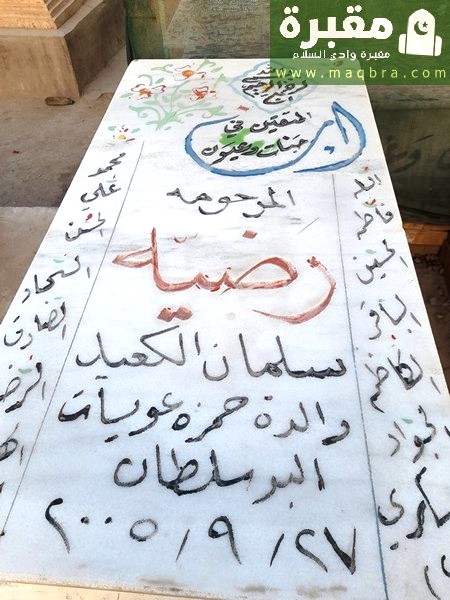 مقبرة
مقبرة وادي السلام
www.maqbra.com
بسم الله
الرحمن الرحيم
ان المتقين في
جنات وعيون
المرحومه
رضيه
سلمان الكعيد
والدة حمزه عويات
البو سلطان
٢٠٠٥/٩/٢٧
محمد
علي
الحسن
السجاد
الصادق
الرضا
فاطمة
الحسين
الباقر
الكاظم
الجواد